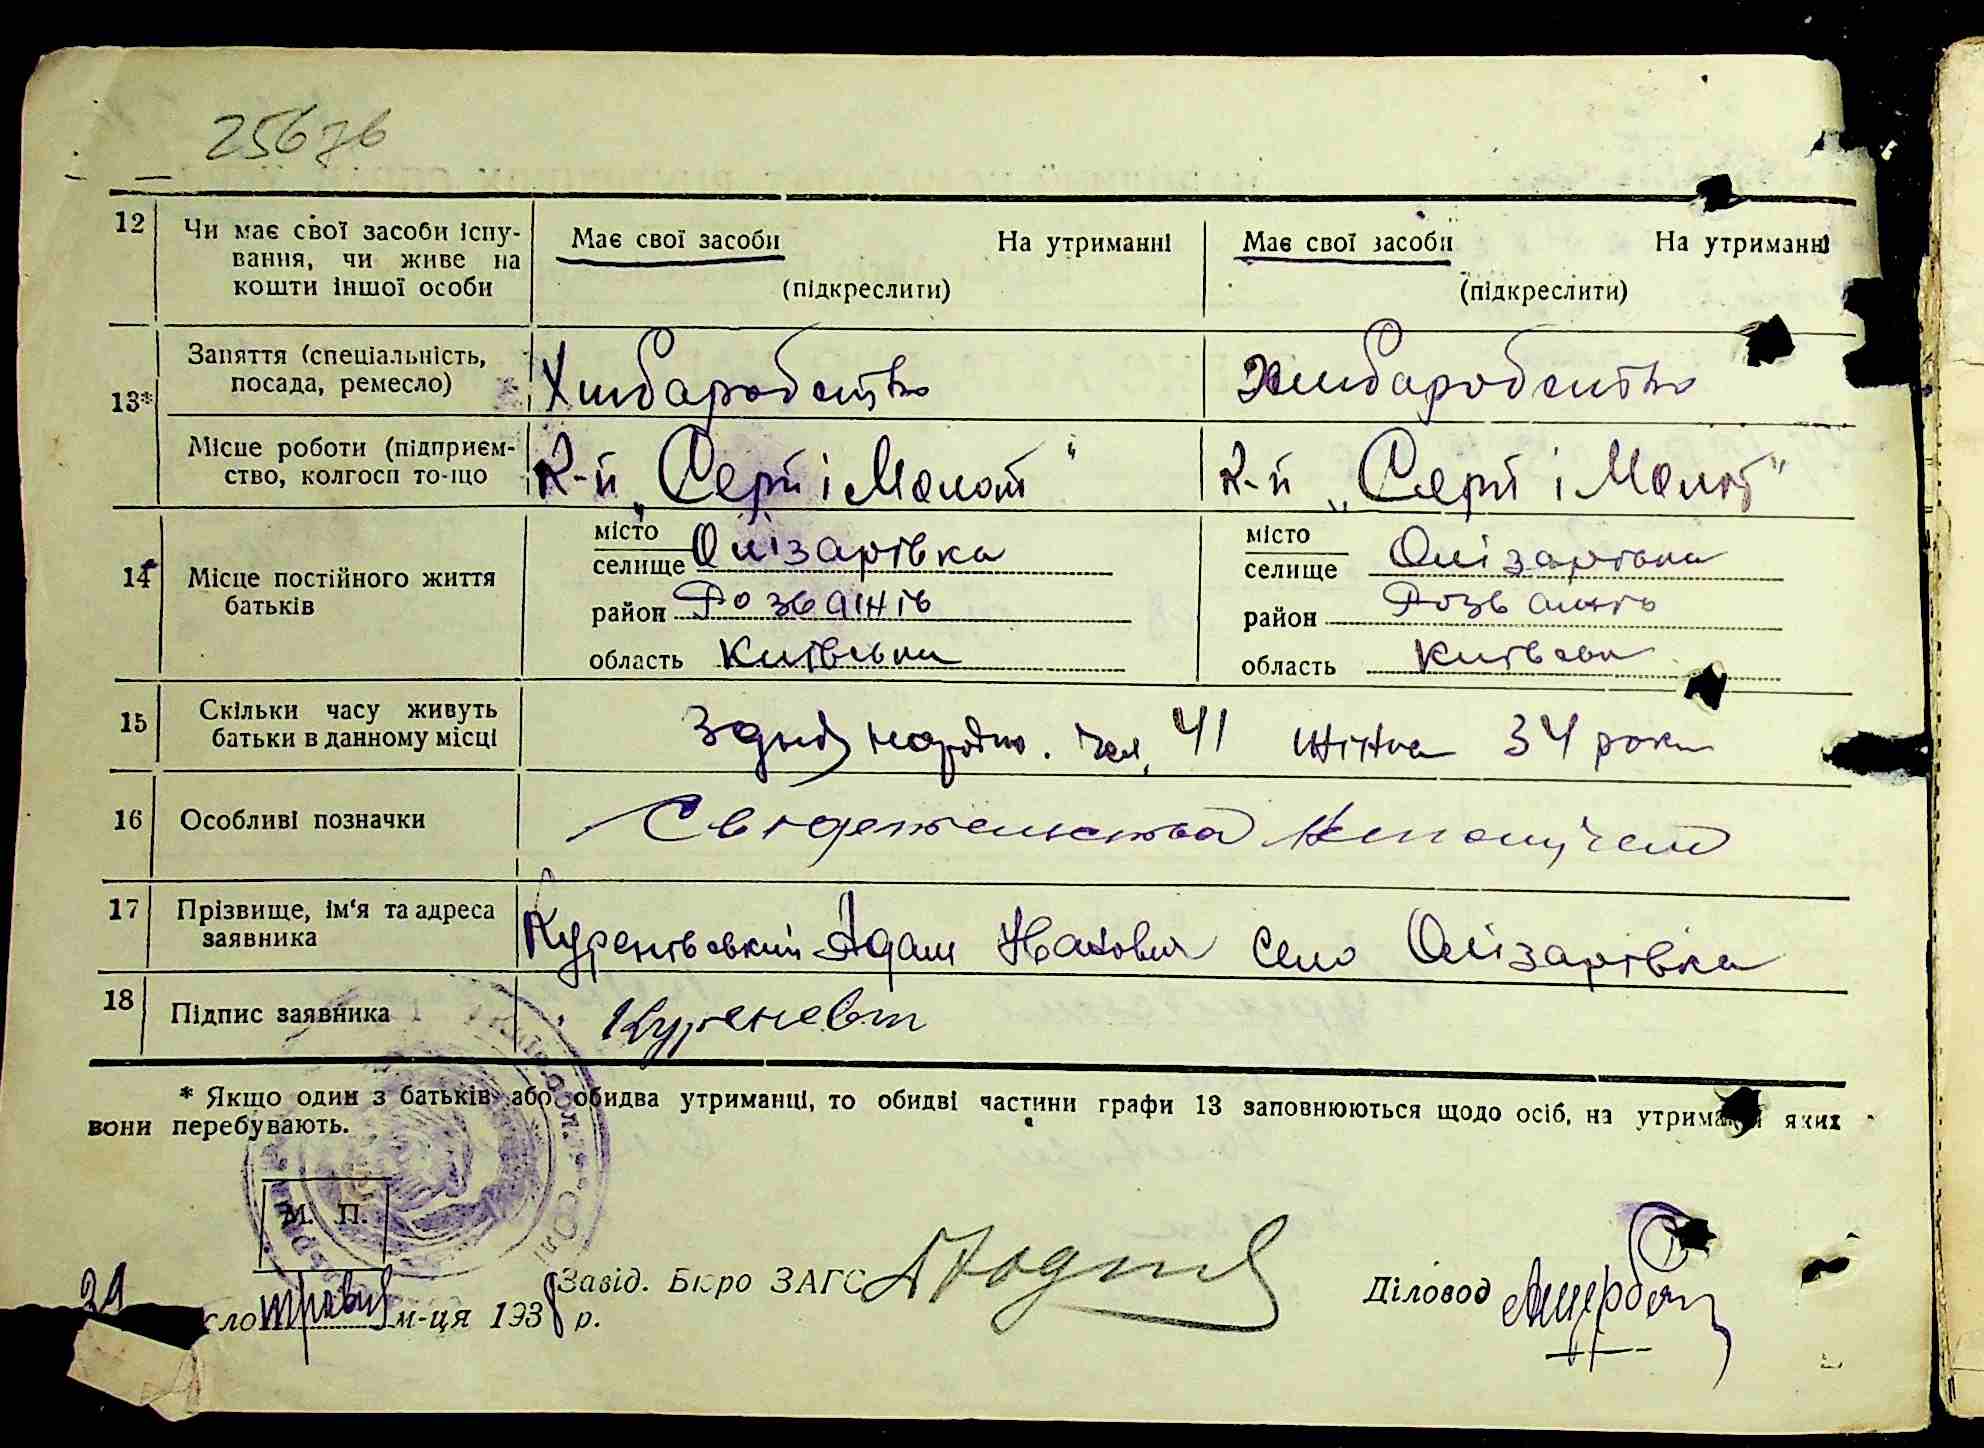 25676
12 Чи має свої засоби існу-
вання, чи живе на
кошти іншої особи
Має свої засоби На утриманні
(підкреслити)
Має свої засоби На утриманні
(підкреслити)
13*
Заняття (спеціальність,
посада, ремесло)
Хлібаробство
Хлібаробство
Місце роботи (підприєм-
ство, колгосп то-що
К-п „Серп і Молот"
К-п „Серп і Молот"
14 Місце постійного життя
батьків
місто
селище Олізарівка
район Розваінів
область Київська
місто
селище Олізарівка
район
область Київська
15 Скільки часу живуть
батьки в данному місці
З дня народж. Чол. 41 жінка 34 роки
16 Особливі позначки
Свидетельства
17 Прізвище, ім'я та адреса
заявника
Куренівський Адам Село Олізарівка
18 Підпис заявника
* Якщо один з батьків або обидва утриманці, то обидві частини графи 13 заповнюються щодо осіб, на утриманні яких
вони перебувають.
М. П.
Завід. Бюро ЗАГС
Діловод
м-ця 1938 р.